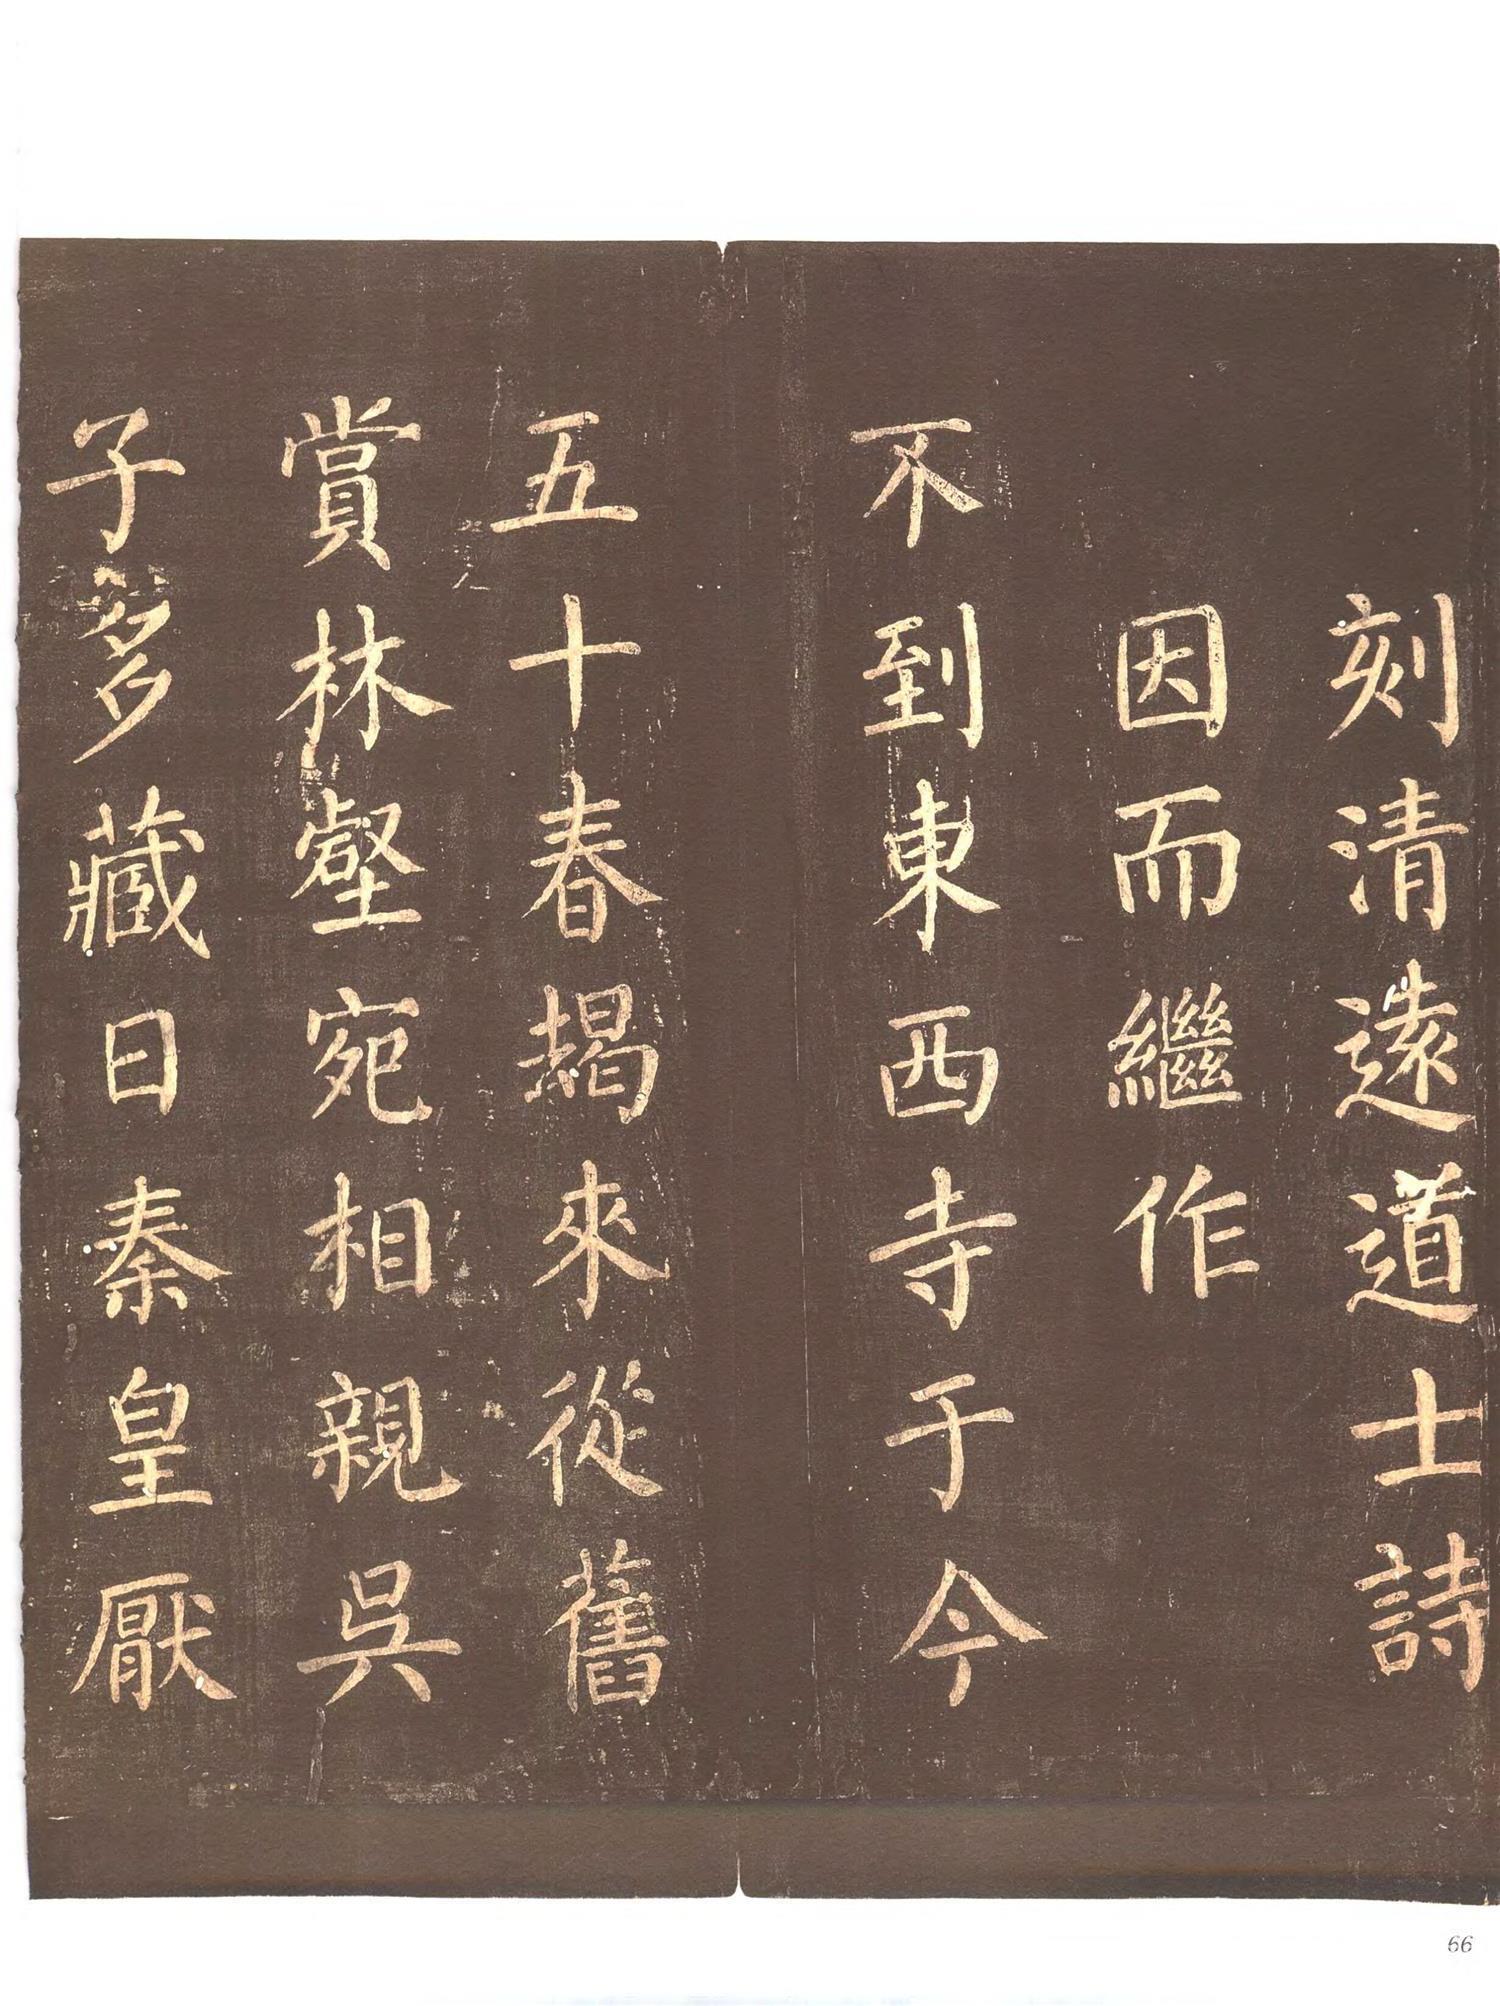 刻清遠道士詩
因而繼作
不到東西寺于今
五十春朅來從舊
賞林壑宛相親吳
子多藏日秦皇厭
66